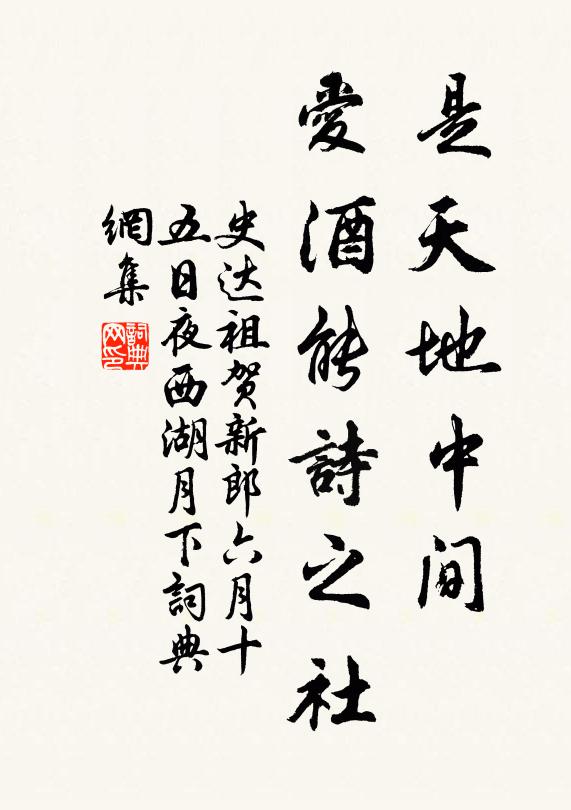 是天地中间
愛酒能詩之社
史达祖贺新郎六月十
五日夜西湖月下詞典
網集
詞典
网印